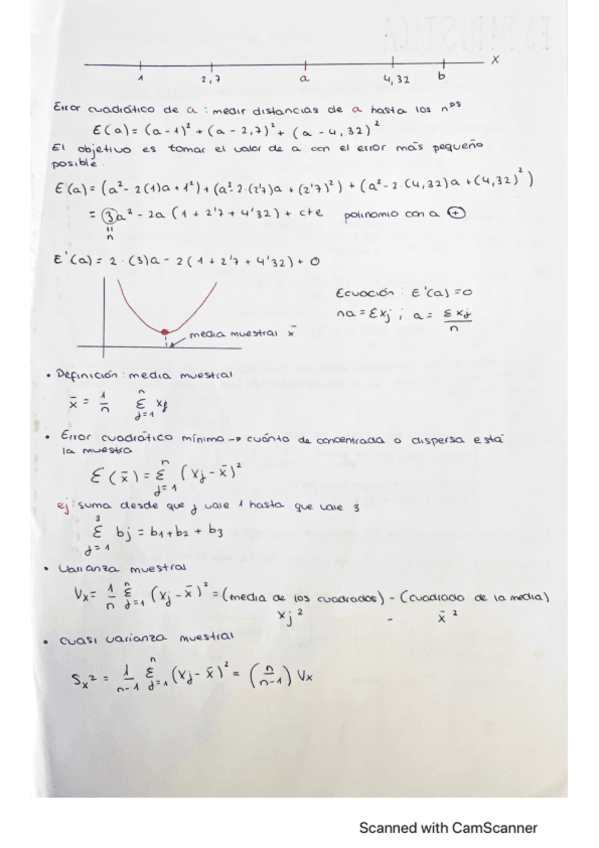 x
1 2,7 a 4,32 b
Error cuadrático de a : medir distancias de a hasta los nºs
E(a) = (a-1)² + (a-2,7)² + (a-4,32)²
El objetivo es tomar el valor de a con el error más pequeño
posible.
E(a) = (a² - 2(1)a + 1²) + (a² - 2·(2'7)a + (2'7)²) + (a² - 2·(4,32)a + (4,32)²)
= 3a² - 2a (1 + 2'7 + 4'32) + cte polinomio con a ⊕
n
E'(a) = 2·(3)a - 2(1 + 2'7 + 4'32) + 0
Ecuación : E'(a) = 0
na = Σxj ; a = Σxj / n
media muestral x̄
• Definición : media muestral
x̄ = 1/n Σ_{j=1}^{n} xj
• Error cuadrático mínimo → cuánto de concentrada o dispersa está
la muestra
E(x̄) = Σ_{j=1}^{n} (xj - x̄)²
ej : suma desde que j vale 1 hasta que vale 3
Σ_{j=1}^{3} bj = b1 + b2 + b3
• Varianza muestral
Vx = 1/n Σ_{j=1}^{n} (xj - x̄)² = (media de los cuadrados) - (cuadrado de la media)
xj² - x̄²
• cuasi varianza muestral
Sx² = 1/(n-1) Σ_{j=1}^{n} (xj - x̄)² = (n/(n-1)) Vx
Scanned with CamScanner